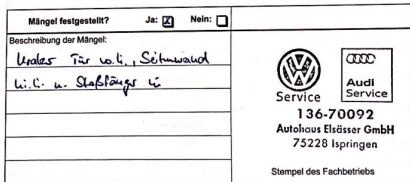 Mängel festgestellt? Ja: X Nein:
Beschreibung der Mängel:
Kratzer Tür v.li., Seitenwand
hi.li. u. Stoßfänger li
Service
Audi
Service
136-70092
Autohaus Elsässer GmbH
75228 Ispringen
Stempel des Fachbetriebs